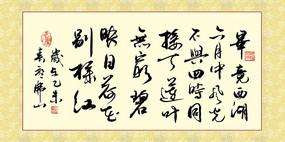 毕竟西湖
六月中风光
不与四时同
接天莲叶
无穷碧
映日荷花
别样红
岁在乙未